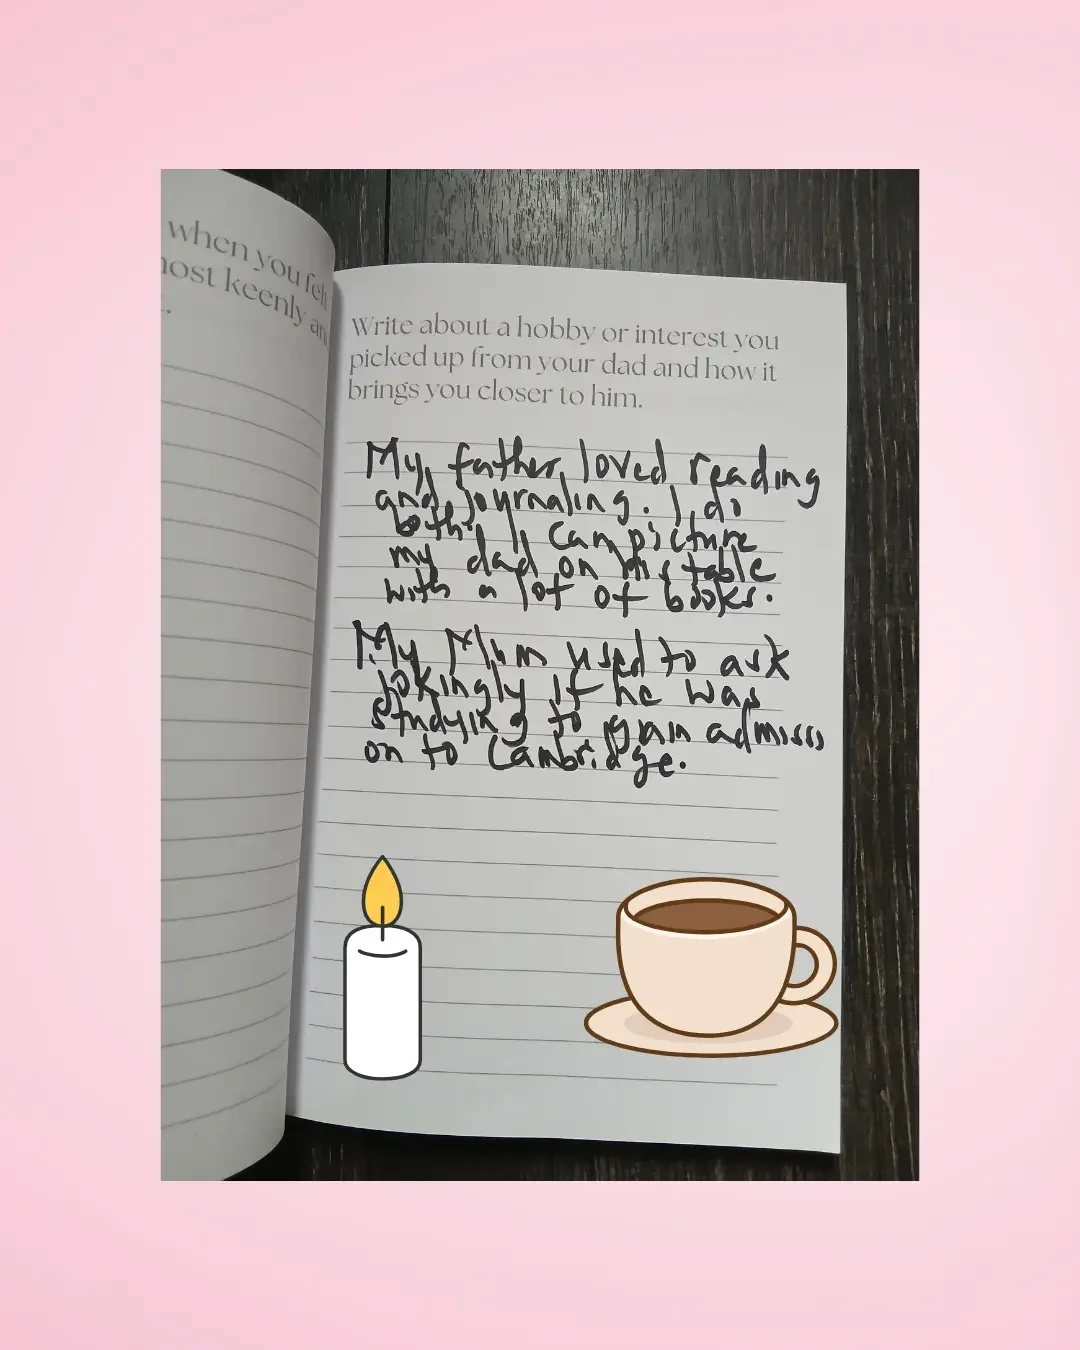 when you felt
most keenly an
Write about a hobby or interest you
picked up from your dad and how it
brings you closer to him.
My father loved reading
and journaling. I do
both. I can picture
my dad on his table
with a lot of books.
My Mum used to ask
jokingly if he was
studying to gain admissi
on to Cambridge.